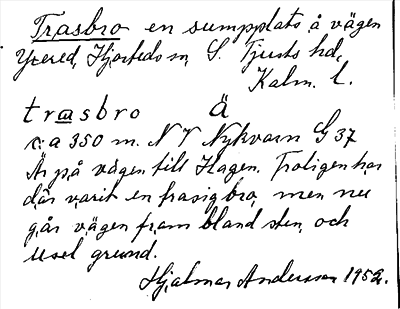 Trasbro en sumpplats å vägen
Yxered, Hjorteds sn, S. Tjusts hd,
Kalm. l.
trasbro Ä
c:a 350 m. N V Nykvarn G 37
Är på vägen till Hagen. Troligen har
där varit en trasig bro, men nu
går vägen fram bland sten och
usel grund.
Hjalmar Andersson 1952.